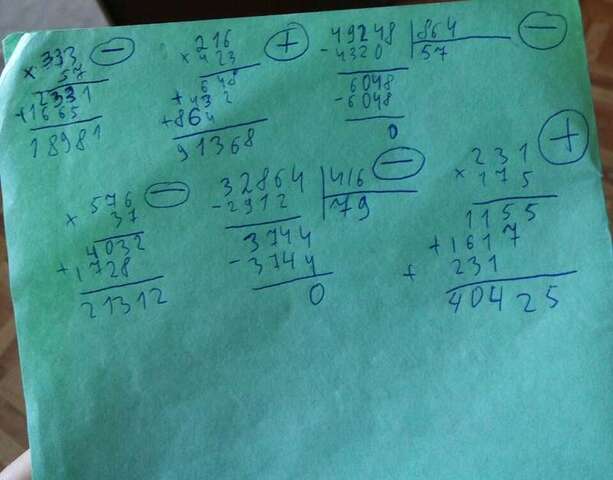 × 333 −
57
2331
+1665
18981
× 216 +
423
648
+ 432
+864
91368
49248 | 864 −
- 4320 | 57
6048
- 6048
0
× 576 −
37
4032
+ 1728
21312
32864 | 416 −
- 2912 | 79
3744
- 3744
0
× 231 +
175
1155
+ 1617
+ 231
40425